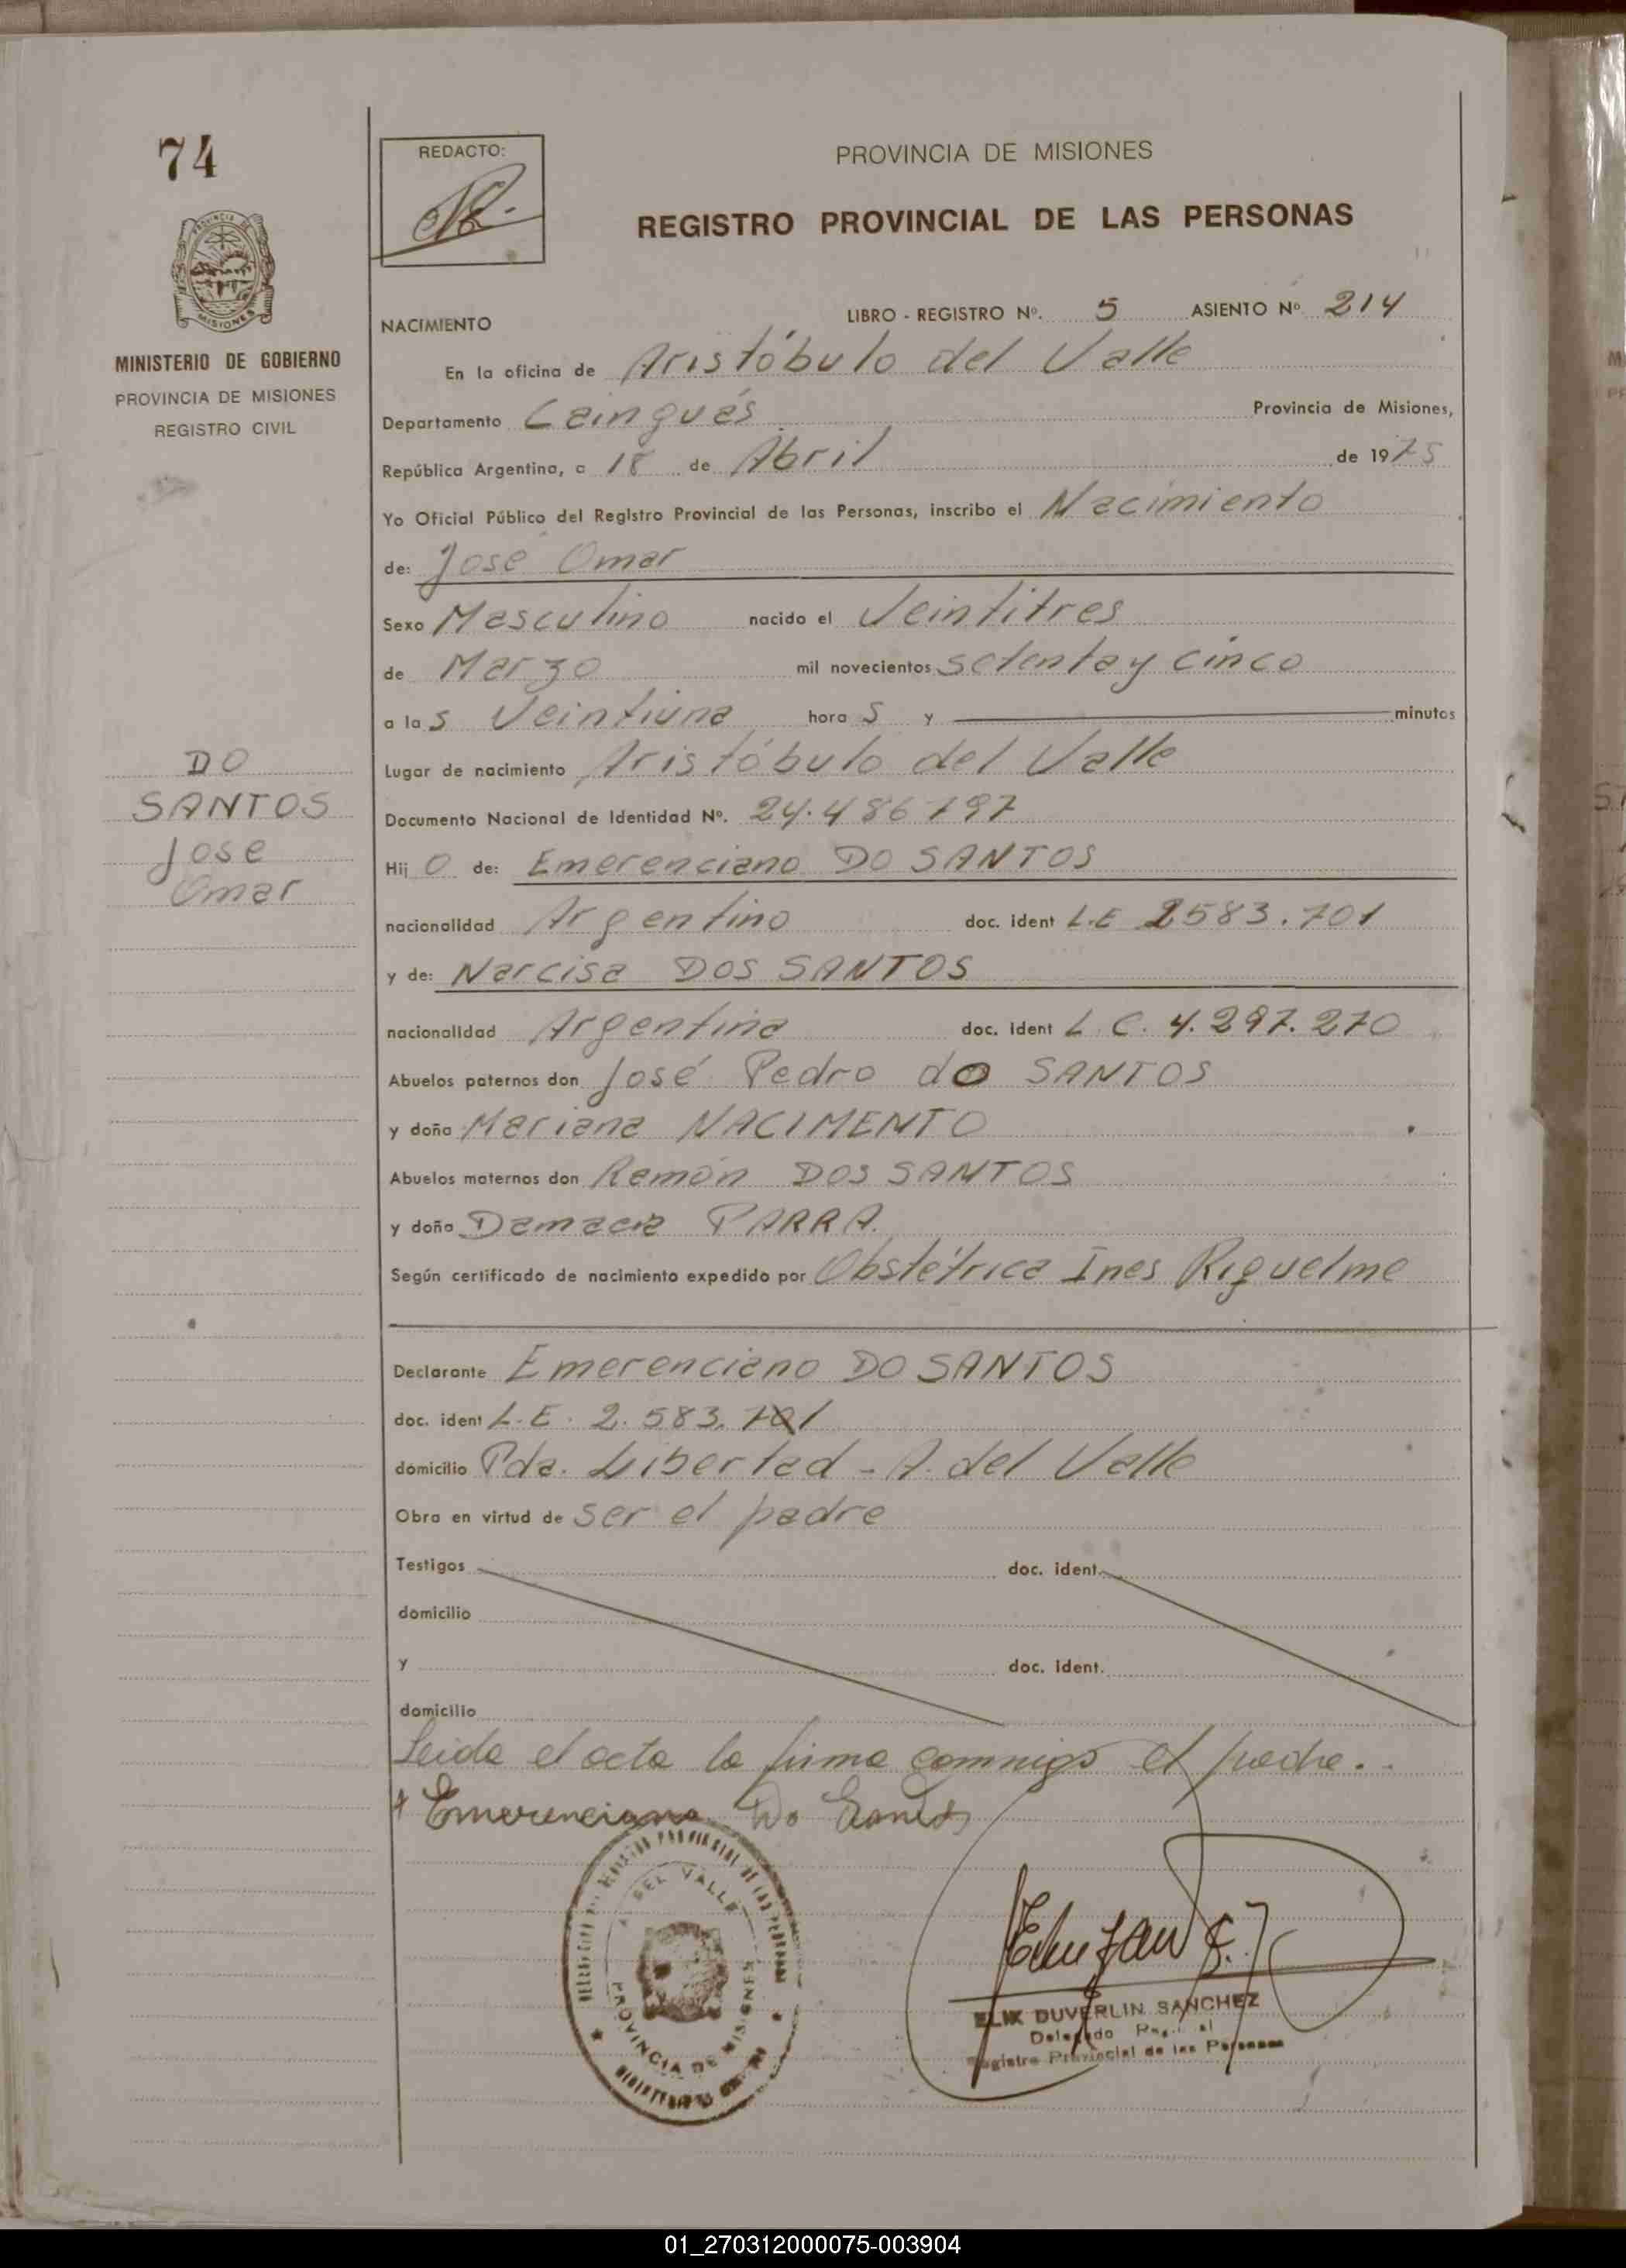 74
REDACTO:
PROVINCIA DE MISIONES
REGISTRO PROVINCIAL DE LAS PERSONAS
MISIONES
MINISTERIO DE GOBIERNO
PROVINCIA DE MISIONES
REGISTRO CIVIL
DO
SANTOS
Jose
Omar
NACIMIENTO
LIBRO - REGISTRO Nº. 5 ASIENTO Nº 214
En la oficina de Aristóbulo del Valle
Departamento Cainguás Provincia de Misiones,
República Argentina, a 18 de Abril de 1975
Yo Oficial Público del Registro Provincial de las Personas, inscribo el Nacimiento
de: José Omar
Sexo Masculino nacido el Veintitres
de Marzo mil novecientos setenta y cinco
a las Veintiuna horas y minutos
Lugar de nacimiento Aristóbulo del Valle
Documento Nacional de Identidad Nº. 24.486797
Hijo de: Emerenciano DO SANTOS
nacionalidad Argentino doc. ident L.E 2583.701
y de: Narcisa DOS SANTOS
nacionalidad Argentina doc. ident L.C. 4.297.270
Abuelos paternos don José Pedro do SANTOS
y doña Mariana NACIMENTO
Abuelos maternos don Ramón DOS SANTOS
y doña Damacia PARRA.
Según certificado de nacimiento expedido por Obstétrica Ines Riquelme
Declarante Emerenciano DO SANTOS
doc. ident L.E. 2.583.701
domicilio Pda. Libertad - A. del Valle
Obra en virtud de ser el padre
Testigos doc. ident.
domicilio
y doc. ident.
domicilio
Leida el acta la firma conmigo el padre..
Emerenciano Do Santos
DEL VALLE
PROVINCIA DE MISIONES
ELIX DUVERLIN SANCHEZ
Delegado
Registro Provincial de las Personas
01_270312000075-003904